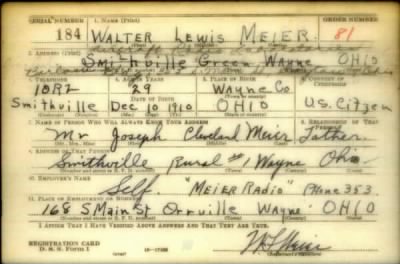 SERIAL NUMBER 1. NAME (Print) ORDER NUMBER
184 WALTER LEWIS MEIER. 81
2. ADDRESS (Print)
Smithville Green Wayne OHIO
3. TELEPHONE 4. AGE IN YEARS 5. PLACE OF BIRTH 6. COUNTRY OF CITIZENSHIP
10R2 29 Wayne Co.
DATE OF BIRTH
Smithville Dec 10 1910 OHIO U.S. Citizen
7. NAME OF PERSON WHO WILL ALWAYS KNOW YOUR ADDRESS 8. RELATIONSHIP OF THAT PERSON
Mr Joseph Cleveland Meier Father
9. ADDRESS OF THAT PERSON
Smithville Rural #1 Wayne Ohio
10. EMPLOYER'S NAME
Self. "MEIER RADIO" Phone 353.
11. PLACE OF EMPLOYMENT OR BUSINESS
168 S Main St Orrville Wayne OHIO
I AFFIRM THAT I HAVE VERIFIED ABOVE ANSWERS AND THAT THEY ARE TRUE.
REGISTRATION CARD
D. S. S. Form 1 (over)